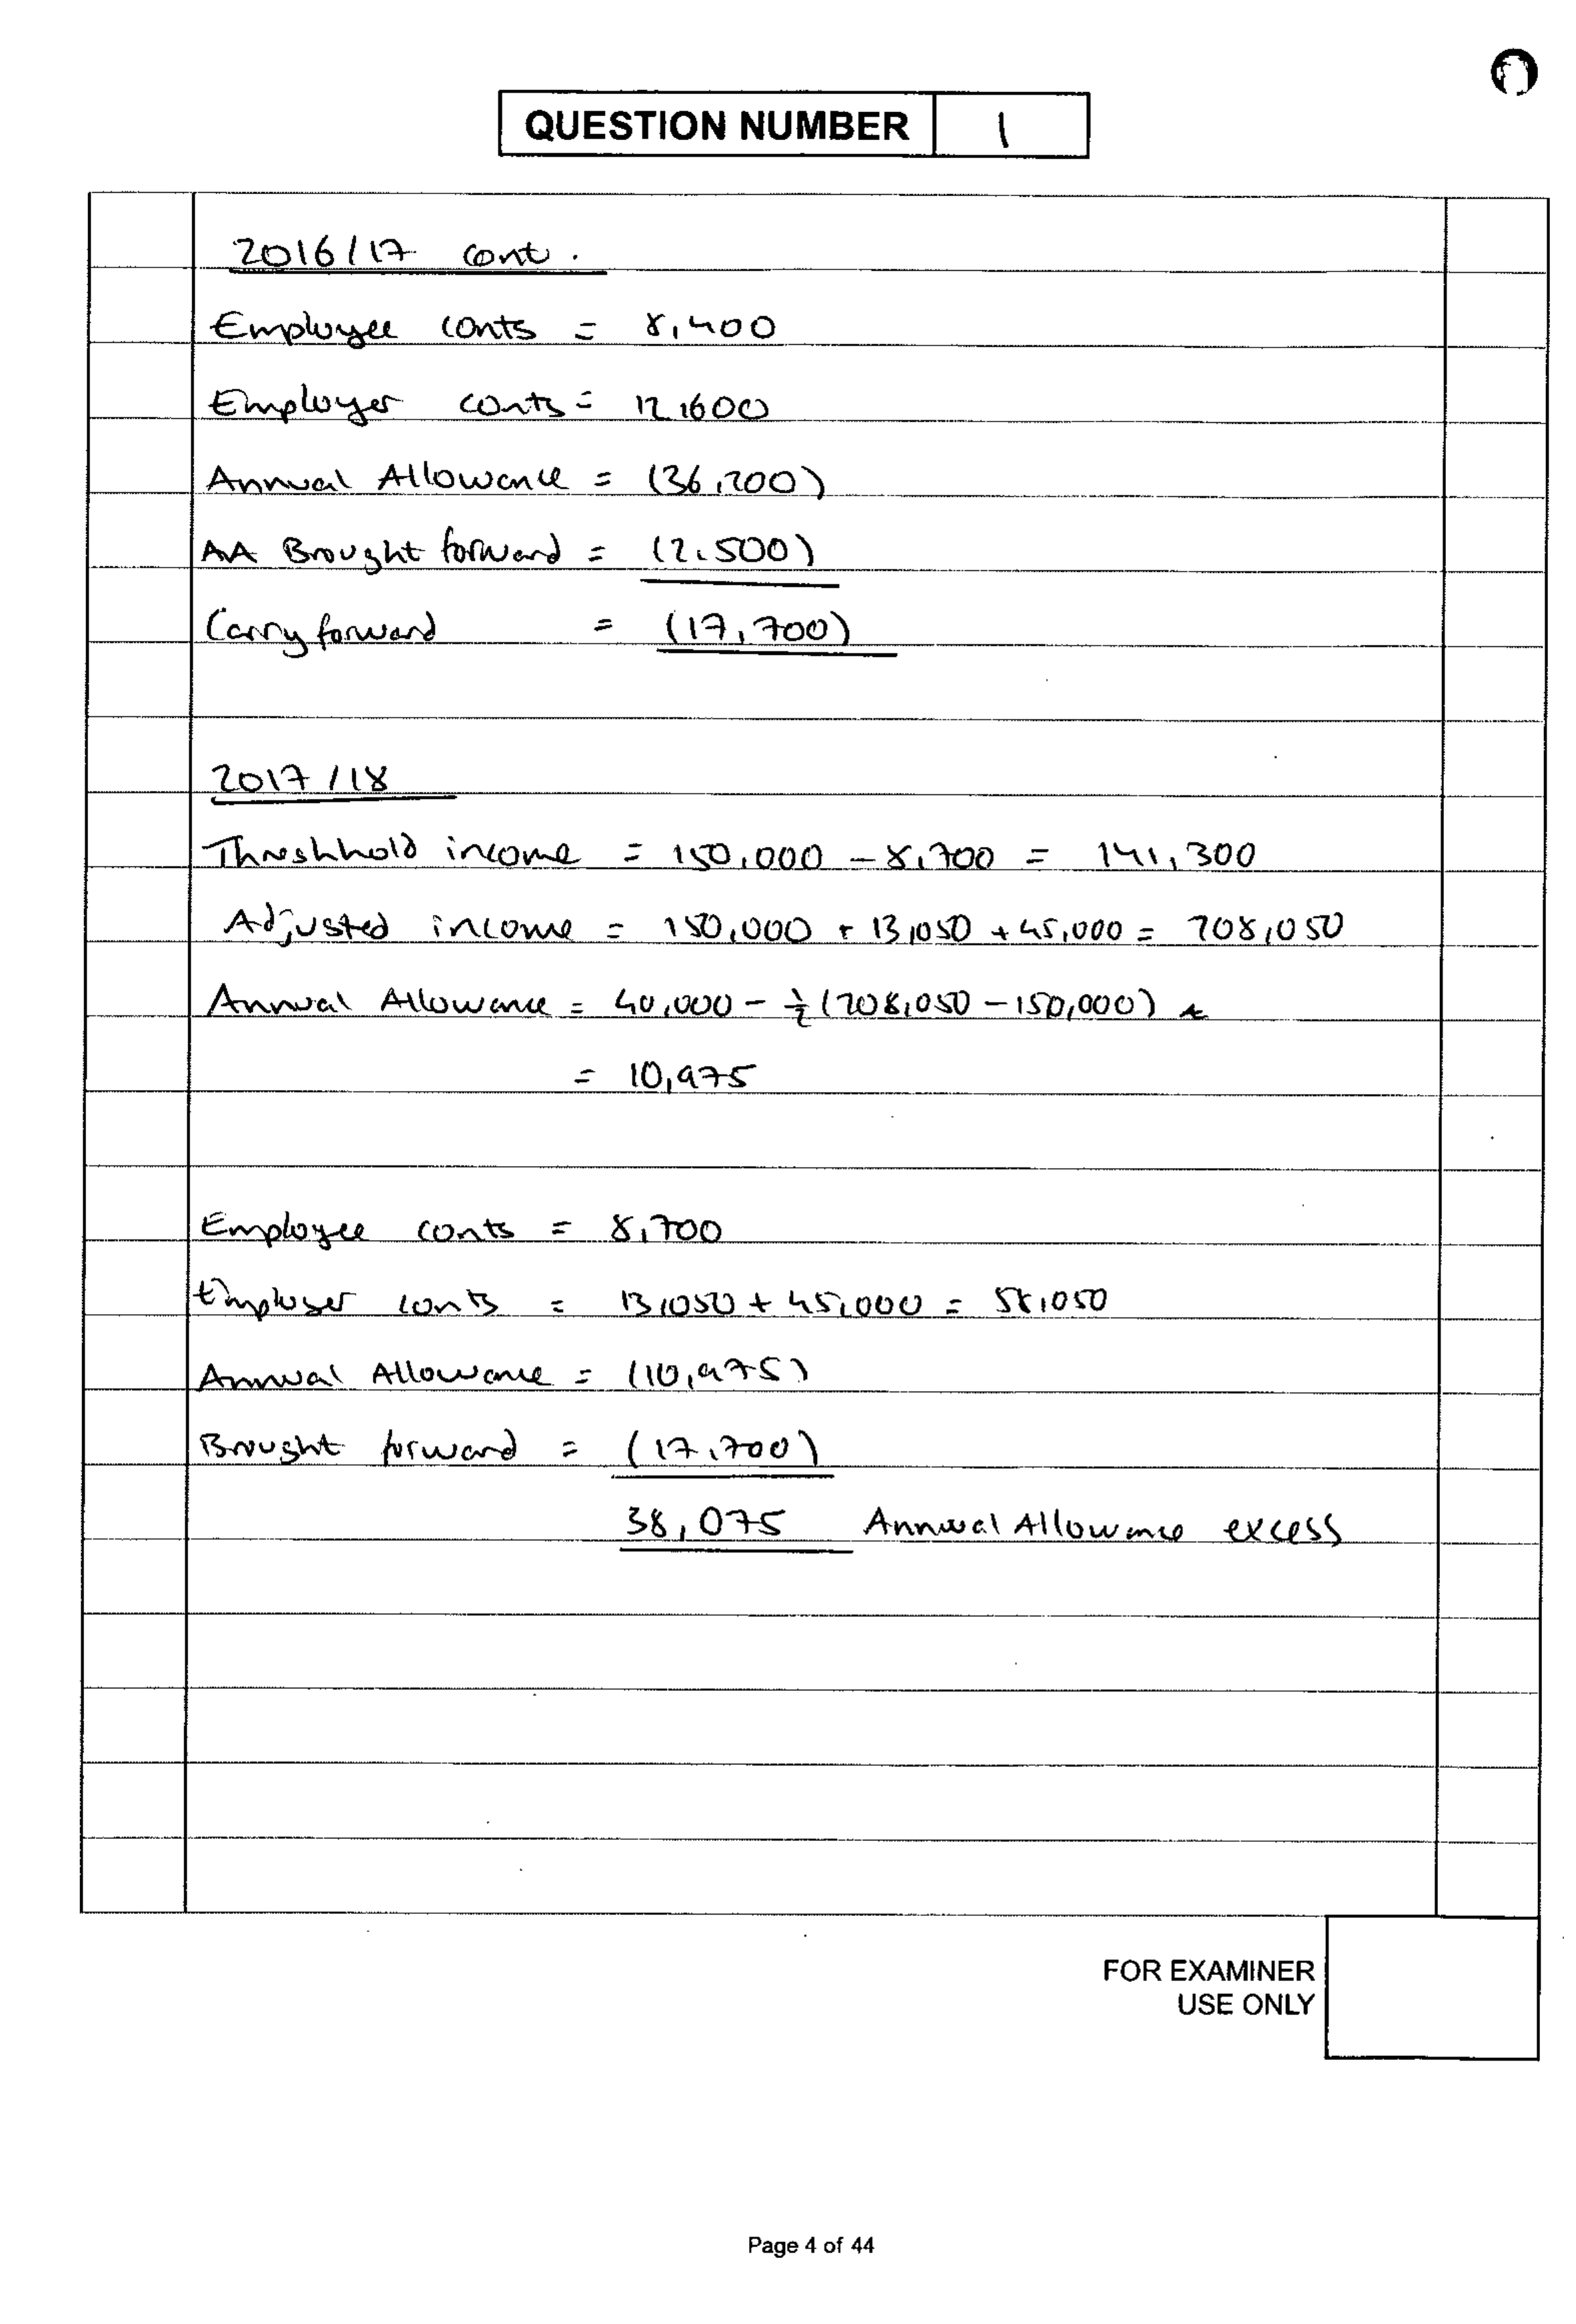 QUESTION NUMBER 1
2016/17 cont.
Employee conts = 8,400
Employer conts = 12,600
Annual Allowance = (36,200)
AA Brought forward = (2,500)
Carry forward = (17,700)
2017/18
Threshhold income = 150,000 - 8,700 = 141,300
Adjusted income = 150,000 + 13,050 + 45,000 = 208,050
Annual Allowance = 40,000 - ½ (208,050 - 150,000)
= 10,975
Employee conts = 8,700
Employer conts = 13,050 + 45,000 = 58,050
Annual Allowance = (10,975)
Brought forward = (17,700)
38,075 Annual Allowance excess
FOR EXAMINER
USE ONLY
Page 4 of 44